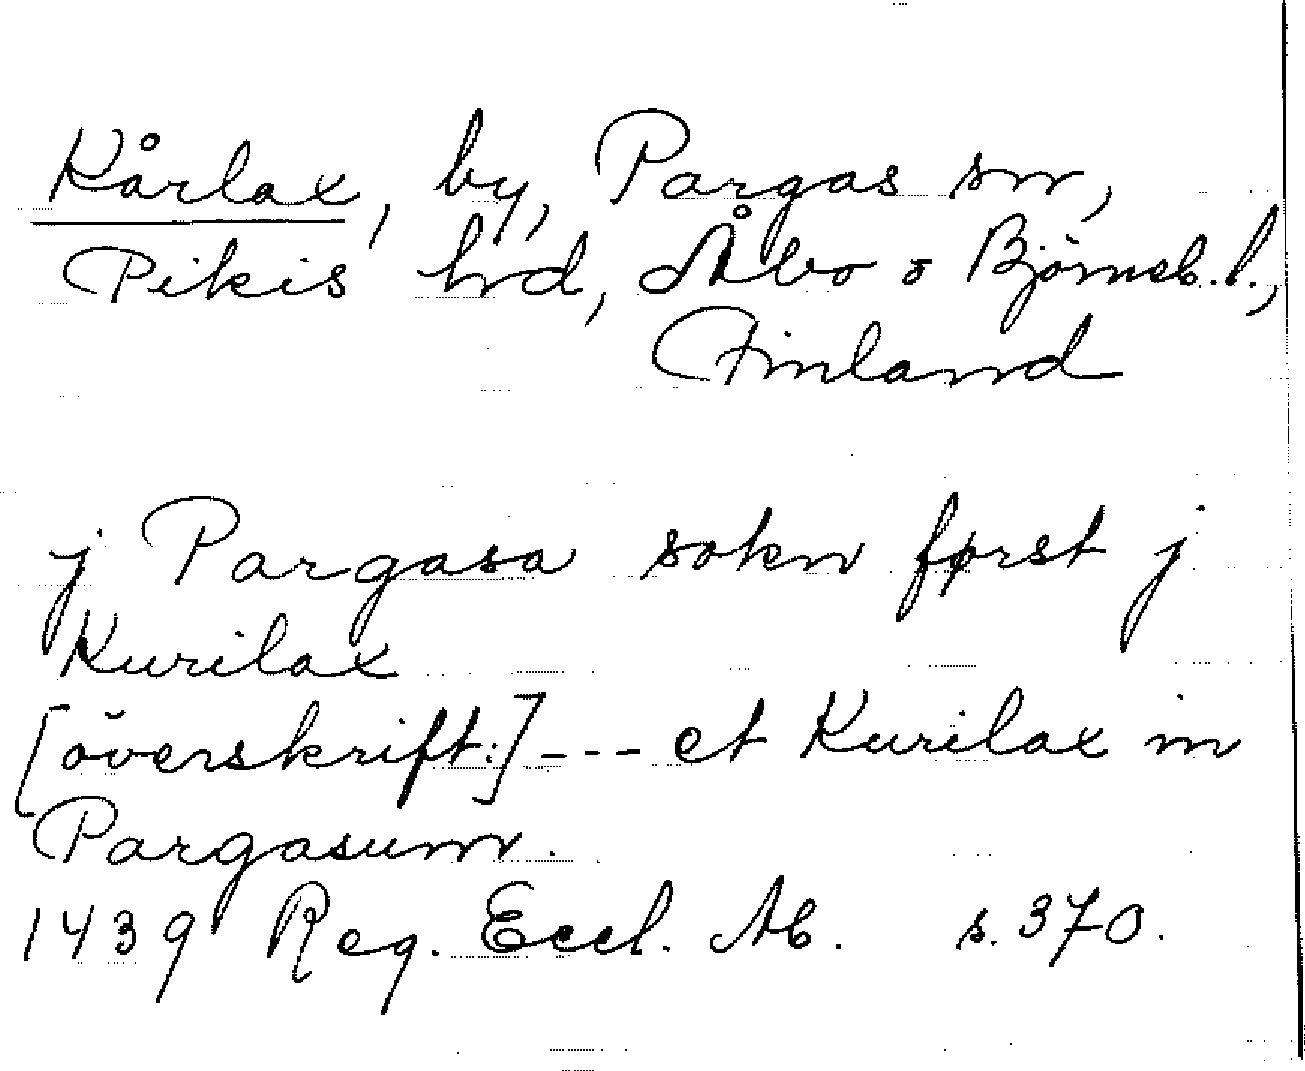 Kårlax, by, Pargas sn,
Pikis hd, Åbo o Björneb. l.,
Finland
j Pargasa soknførst j
Kurilax
[överskrift:] --- et Kurilax in
Pargasum.
1439 Reg. Eccl. Ab. s. 370.